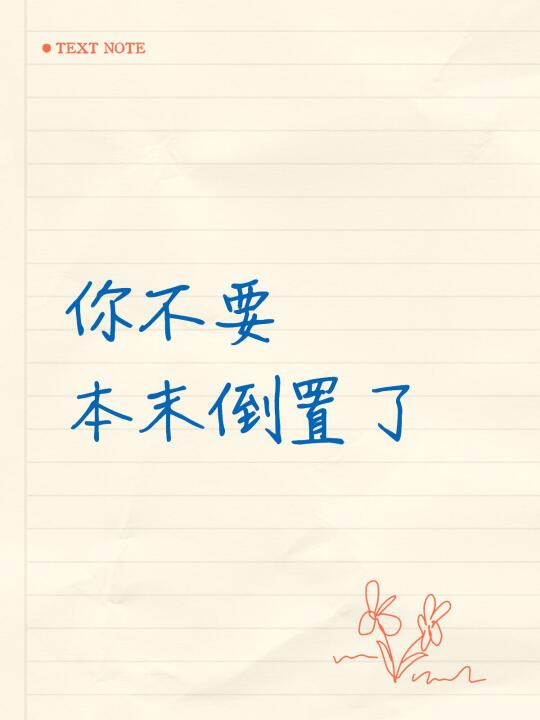 TEXT NOTE
你不要
本末倒置了